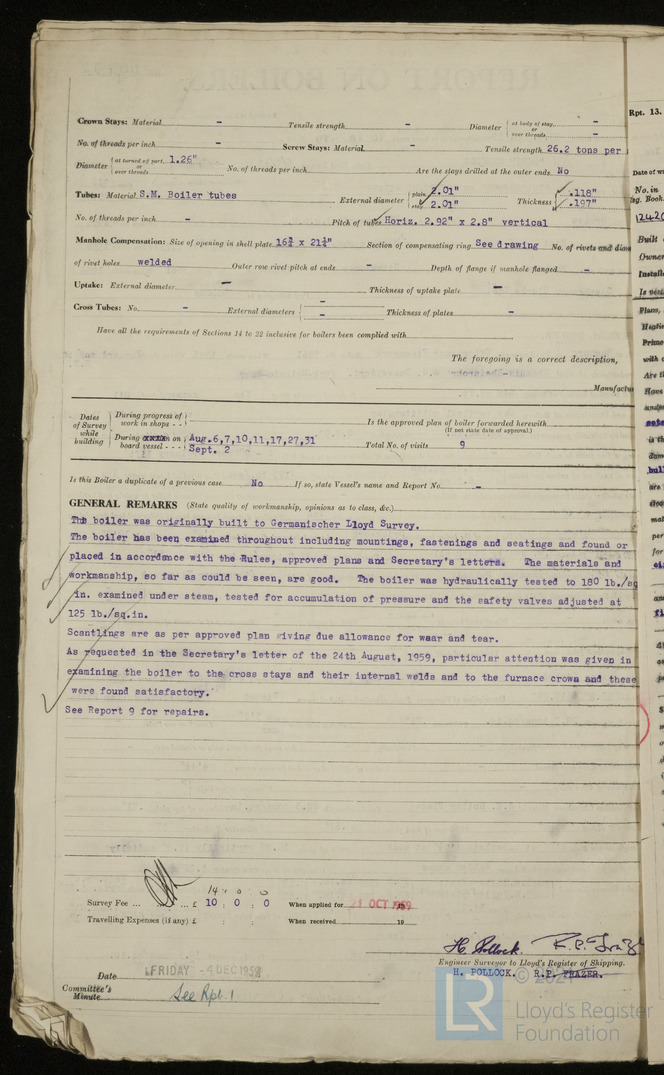 Crown Stays: Material - Tensile strength - Diameter { at body of stay, or over threads - -
No. of threads per inch - Screw Stays: Material - Tensile strength 26.2 tons per
Diameter { at turned off part, or over threads 1.26" No. of threads per inch Are the stays drilled at the outer ends No
Tubes: Material S.M. Boiler tubes External diameter { plain 2.01" stay 2.01" Thickness { .118" .197"
No. of threads per inch - Pitch of tubes Horiz. 2.92" x 2.8" vertical
Manhole Compensation: Size of opening in shell plate 16¾ x 21¼" Section of compensating ring See drawing No. of rivets and diam
of rivet holes welded Outer row rivet pitch at ends - Depth of flange if manhole flanged -
Uptake: External diameter - Thickness of uptake plate -
Cross Tubes: No. - External diameters { - - Thickness of plates -
Have all the requirements of Sections 14 to 22 inclusive for boilers been complied with
The foregoing is a correct description,
-
Manufactur
Dates of Survey while building { During progress of work in shops - - Is the approved plan of boiler forwarded herewith
(If not state date of approval.)
During xxxxx on board vessel - - - Aug.6,7,10,11,17,27,31 Sept. 2 Total No. of visits 9
Is this Boiler a duplicate of a previous case No If so, state Vessel's name and Report No. -
GENERAL REMARKS (State quality of workmanship, opinions as to class, &c.)
The boiler was originally built to Germanischer Lloyd Survey.
The boiler has been examined throughout including mountings, fastenings and seatings and found or
placed in accordance with the Rules, approved plans and Secretary's letters. The materials and
workmanship, so far as could be seen, are good. The boiler was hydraulically tested to 180 lb./sq
in. examined under steam, tested for accumulation of pressure and the safety valves adjusted at
125 lb./sq.in.
Scantlings are as per approved plan giving due allowance for wear and tear.
As requested in the Secretary's letter of the 24th August, 1959, particular attention was given in
examining the boiler to the cross stays and their internal welds and to the furnace crown and these
were found satisfactory.
See Report 9 for repairs.
14 0 0
Survey Fee ... ... £ 10 : 0 : 0 When applied for 21 OCT 1959
Travelling Expenses (if any) £ : : When received 19
H. Pollock. R.P. Fraze
Engineer Surveyor to Lloyd's Register of Shipping.
H. POLLOCK. R.P. FRAZER.
Date FRIDAY - 4 DEC 1959
Committee's Minute See Rpt. 1
© 2021
LR Lloyd's Register
Foundation
Rpt. 13.
Date of w
No. in
Reg. Book.
Built
Owner
Install
Is vess
Plans,
Heatin
Prime
with
Are th
Have